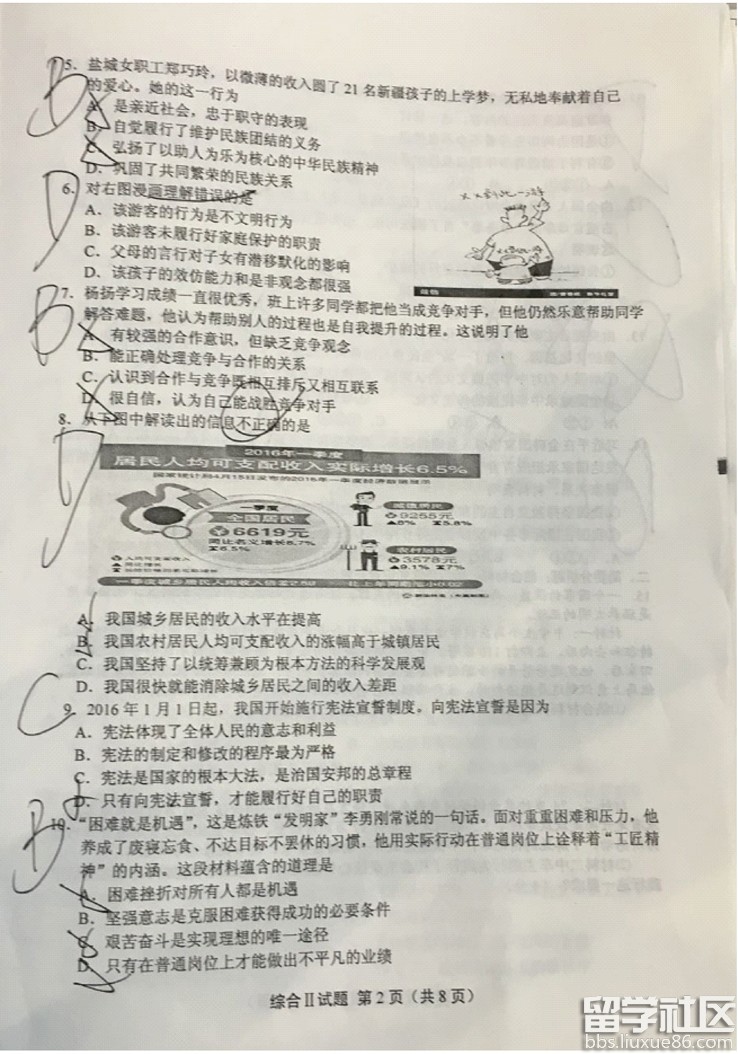 5．盐城女职工郑巧玲，以微薄的收入圆了21名新疆孩子的上学梦，无私地奉献着自己
的爱心。她的这一行为
A．是亲近社会，忠于职守的表现
B．自觉履行了维护民族团结的义务
C．弘扬了以助人为乐为核心的中华民族精神
D．巩固了共同繁荣的民族关系
6．对右图漫画理解错误的是
A．该游客的行为是不文明行为
B．该游客未履行好家庭保护的职责
C．父母的言行对子女有潜移默化的影响
D．该孩子的效仿能力和是非观念都很强
7．杨扬学习成绩一直很优秀，班上许多同学都把他当成竞争对手，但他仍然乐意帮助同学
解答难题，他认为帮助别人的过程也是自我提升的过程。这说明了他
A．有较强的合作意识，但缺乏竞争观念
B．能正确处理竞争与合作的关系
C．认识到合作与竞争既相互排斥又相互联系
D．很自信，认为自己能战胜竞争对手
8．从下图中解读出的信息不正确的是
2016年一季度
居民人均可支配收入实际增长6.5%
国家统计局4月15日发布的2016年一季度经济数据显示
一季度
全国居民
6619元
同比名义增长8.7%
6.5%
城镇居民
9255元
8% 5.8%
农村居民
3578元
9.1% 7%
人均可支配收入
一季度城乡居民人均收入倍差2.59 比上年同期缩小0.02
A．我国城乡居民的收入水平在提高
B．我国农村居民人均可支配收入的涨幅高于城镇居民
C．我国坚持了以统筹兼顾为根本方法的科学发展观
D．我国很快就能消除城乡居民之间的收入差距
9．2016年1月1日起，我国开始施行宪法宣誓制度。向宪法宣誓是因为
A．宪法体现了全体人民的意志和利益
B．宪法的制定和修改的程序最为严格
C．宪法是国家的根本大法，是治国安邦的总章程
D．只有向宪法宣誓，才能履行好自己的职责
10．“困难就是机遇”，这是炼铁“发明家”李勇刚常说的一句话。面对重重困难和压力，他
养成了废寝忘食、不达目标不罢休的习惯，他用实际行动在普通岗位上诠释着“工匠精
神”的内涵。这段材料蕴含的道理是
A．困难挫折对所有人都是机遇
B．坚强意志是克服困难获得成功的必要条件
C．艰苦奋斗是实现理想的唯一途径
D．只有在普通岗位上才能做出不平凡的业绩
综合Ⅱ试题 第2页（共8页）
留学社区
bbs.liuxue86.com